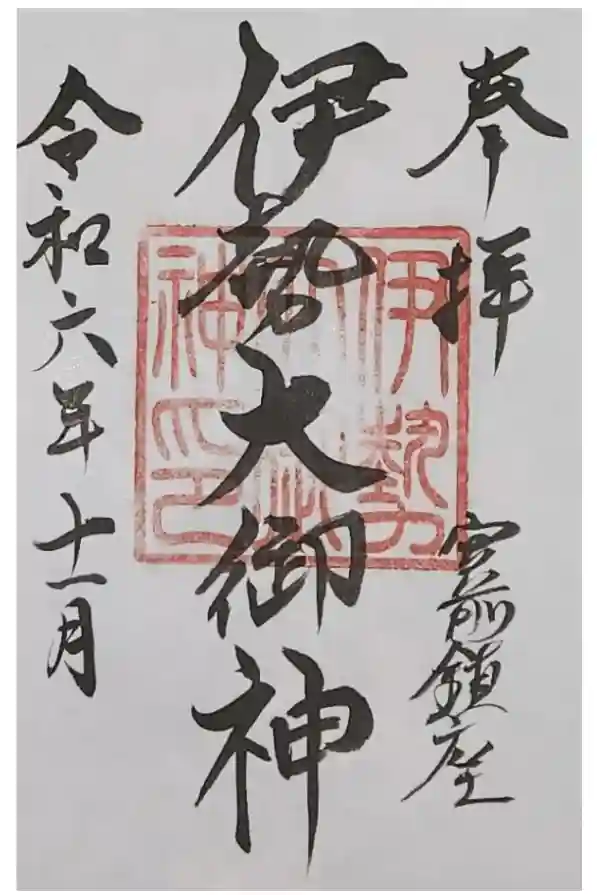 奉拝
宮前鎮座
伊勢大御神
令和六年十一月
伊勢
大御
神印